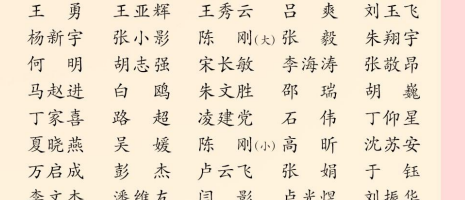 王 勇 王亚辉 王秀云 吕 爽 刘玉飞
杨新宇 张小影 陈 刚(大) 张 毅 朱翔宇
何 明 胡志强 宋长敏 李海涛 张敬昂
马赵进 白 鸥 朱文胜 邵 瑞 胡 巍
丁家喜 路 超 凌建党 石 伟 丁仰星
夏晓燕 吴 媛 陈 刚(小) 高 昕 沈苏安
万启成 彭 杰 卢云飞 张 娟 于 钰
李文杰 潘维友 闫 影 卢光煜 刘振华